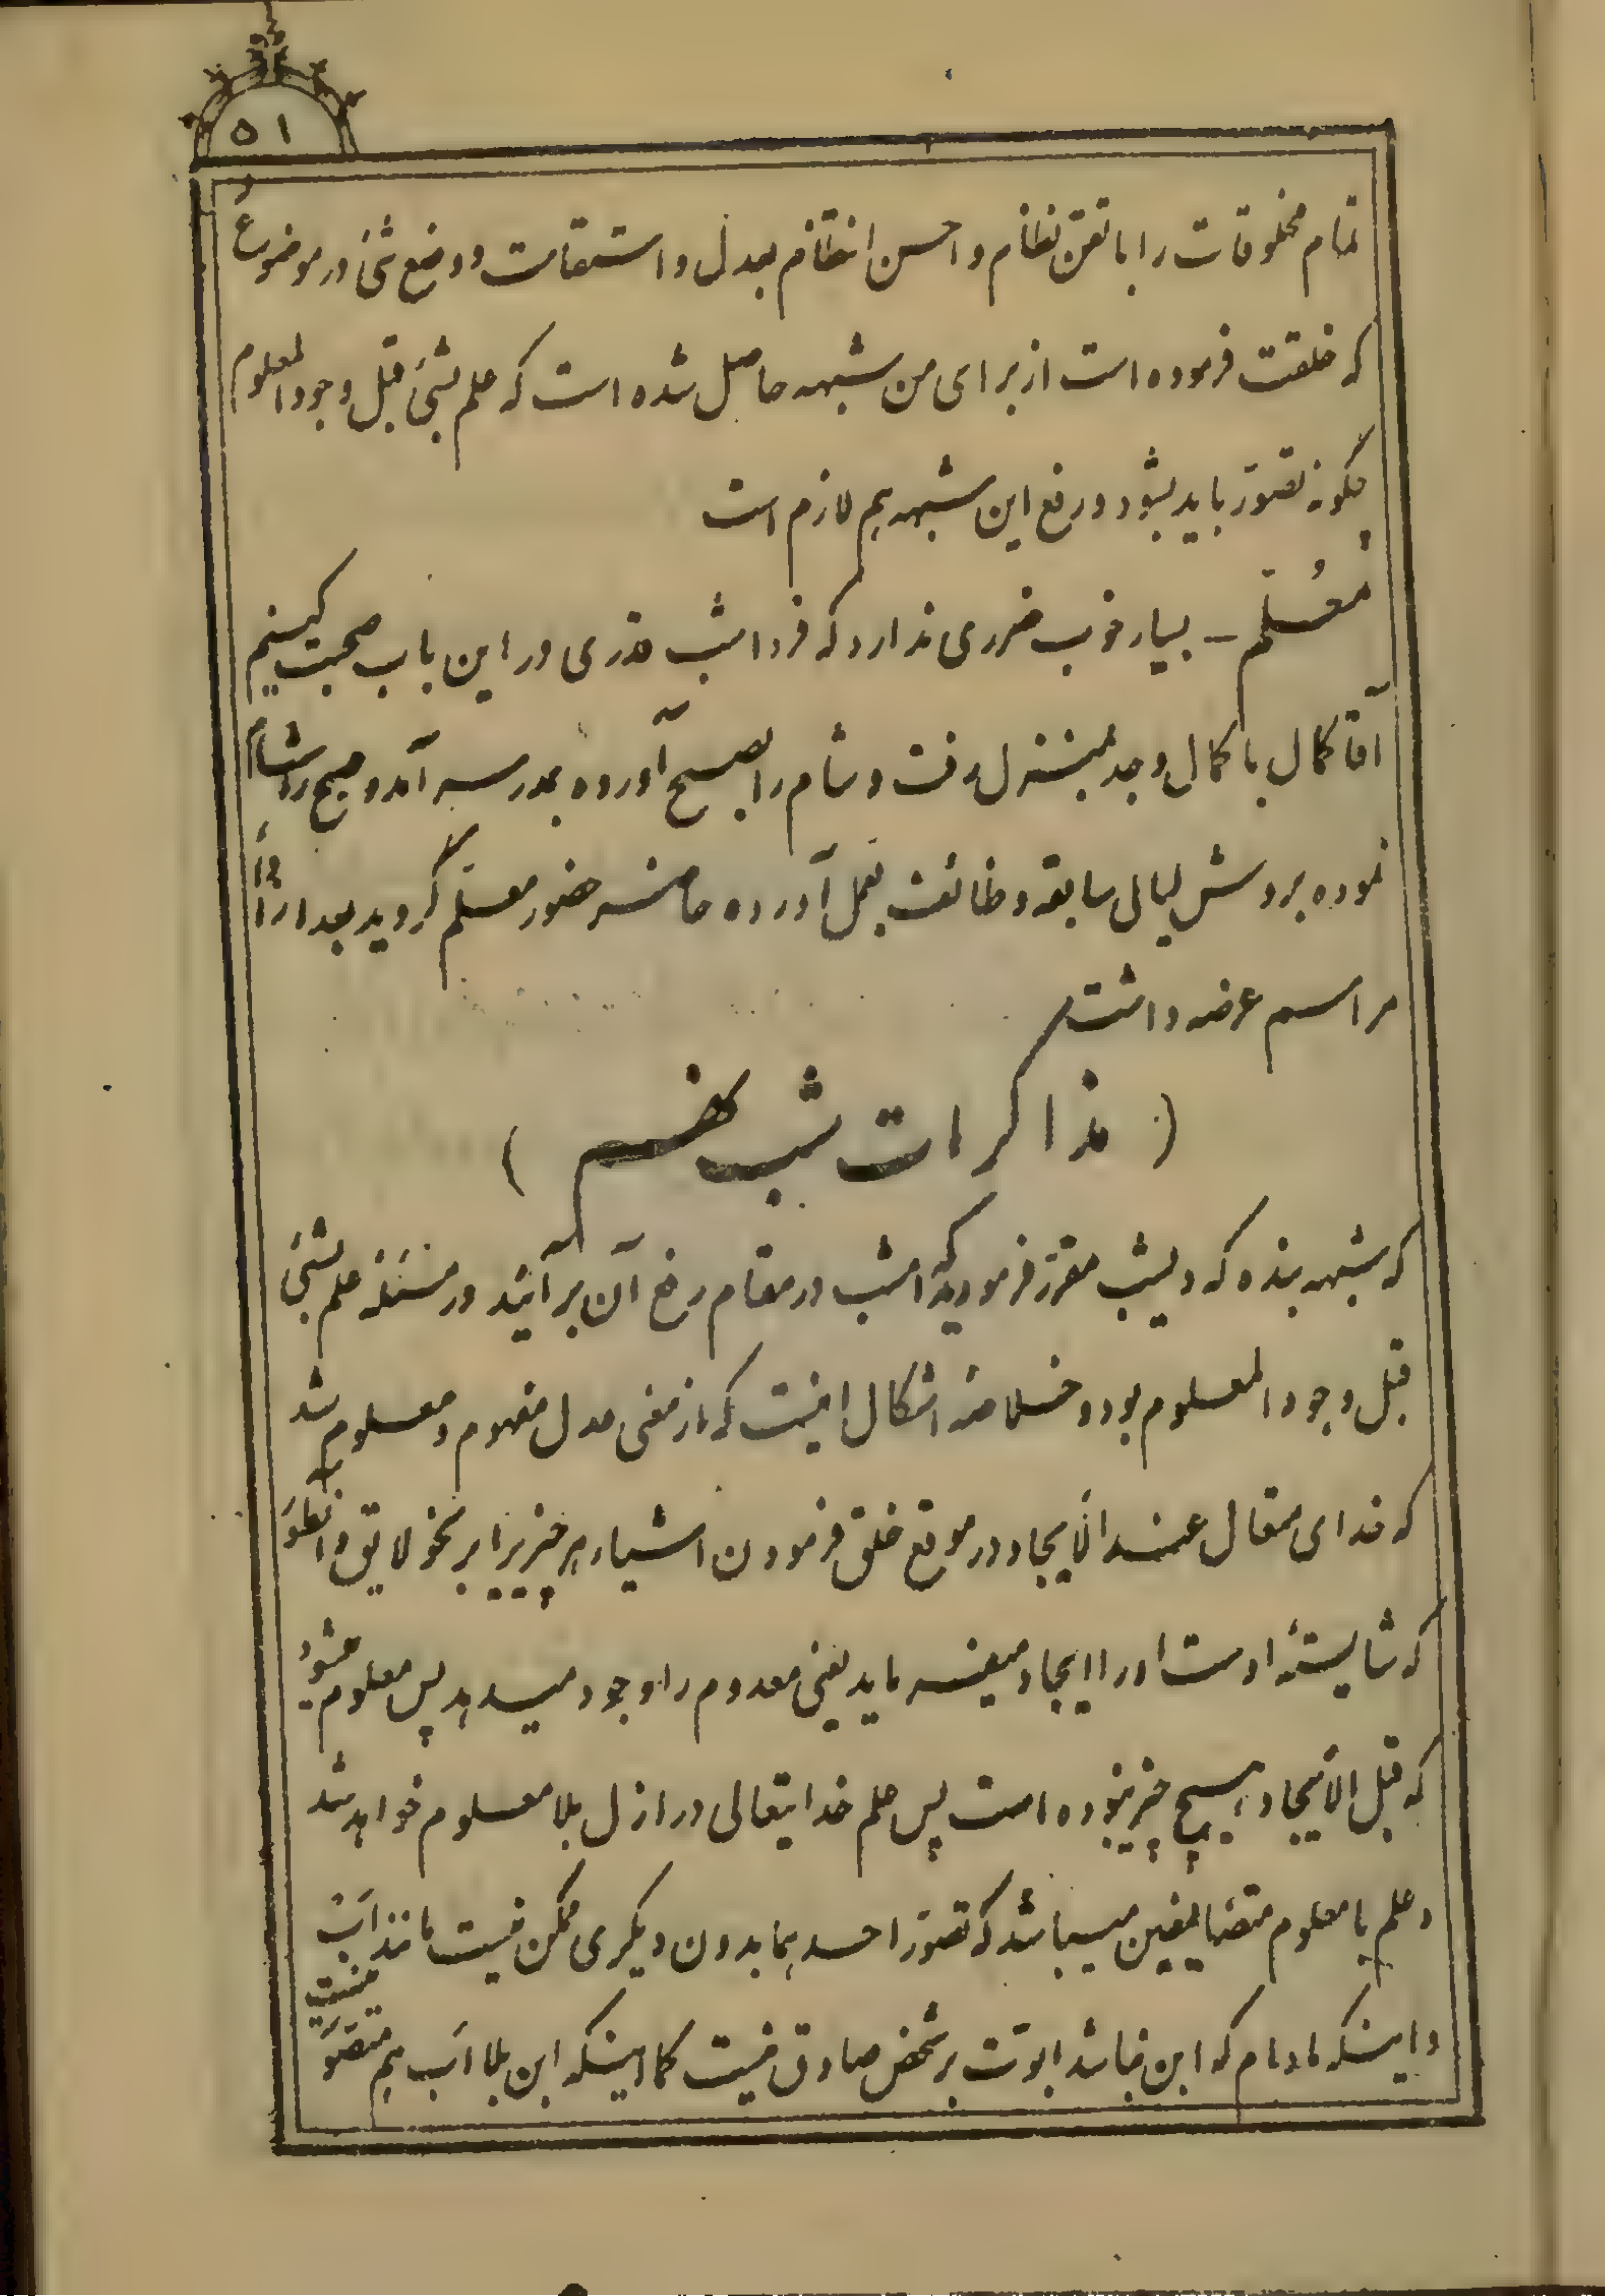 ۵۱
تمام مخلوقات را باتقن نظام و احسن انتظام بعدل و استقامت و وضع شئ در موضوع
که خلقت فرموده است از برای من شبهه حاصل شده است که علم بشئ قبل وجود المعلوم
چگونه تصور باید بشود و رفع این شبهه هم لازم است
معُلّم – بسیار خوب ضرری ندارد که فردا شب قدری در این باب صحبت کنیم
آقا کمال با کمال وجد بمنزل رفت و شام را بصبح آورده بمدرسه آمد و صبح را شام
نموده بروش لیالی سابقه وظائف بعمل آورده حاضر حضور معلّم گردید بعد از
مراسم عرضه داشت
( مذاکرات شب نهم )
که شبهه بنده که دیشب مقرّر فرمودید که امشب در مقام رفع آن برآئید در مسئله علم بشئ
قبل وجود المعلوم بود و خلاصه اشکال اینست که از معنی عدل مفهوم و معلوم شد
که خدای متعال عند الأیجاد در موقع خلق فرمودن اشیاء هر چیزیرا بر نحو لایق و انطور
که شایستهٔ اوست او را ایجاد میفرماید یعنی معدوم را وجود میدهد پس معلوم میشود
که قبل الأیجاد هیچ چیز نبوده است پس علم خدایتعالی در ازل بلا معلوم خواهد شد
و علم با معلوم متضایفین میباشد که تصوّر احدهما بدون دیگری ممکن نیست مانند اَب
و اینکه مادام که ابن نباشد ابوّت بر شخص صادق نیست کما اینکه ابن بلا اَب هم متصوّر نیست